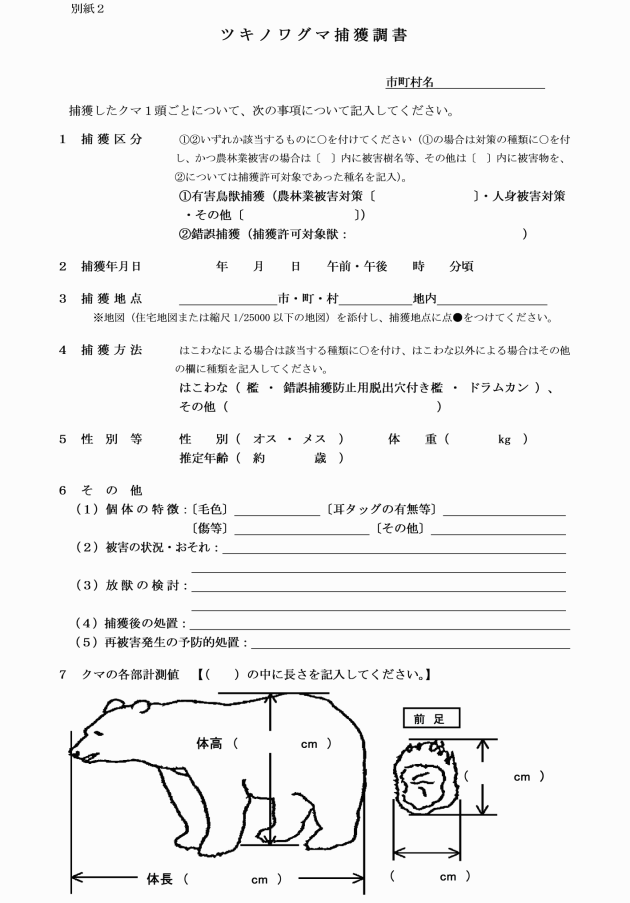 別紙２
ツキノワグマ捕獲調書
市町村名
捕獲したクマ１頭ごとについて、次の事項について記入してください。
１　捕獲区分　①②いずれか該当するものに○を付けてください（①の場合は対策の種類に○を付
し、かつ農林業被害の場合は〔　〕内に被害樹名等、その他は〔　〕内に被害物を、
②については捕獲許可対象であった種名を記入）。
①有害鳥獣捕獲（農林業被害対策〔　　　　〕・人身被害対策
・その他〔　　　　〕）
②錯誤捕獲（捕獲許可対象獣：　　　　）
２　捕獲年月日　　年　　月　　日　　午前・午後　　時　　分頃
３　捕獲地点　＿＿＿＿市・町・村＿＿＿＿地内＿＿＿＿
※地図（住宅地図または縮尺 1/25000 以下の地図）を添付し、捕獲地点に点●をつけてください。
４　捕獲方法　はこわなによる場合は該当する種類に○を付け、はこわな以外による場合はその他
の欄に種類を記入してください。
はこわな（ 檻 ・ 錯誤捕獲防止用脱出穴付き檻 ・ ドラムカン ）、
その他（　　　　）
５　性別等　性　別（　オス ・ メス　）　体　重（　　　kg　）
推定年齢（　約　　　歳　）
６　その他
（１）個体の特徴：〔毛色〕＿＿＿＿〔耳タッグの有無等〕＿＿＿＿
〔傷等〕＿＿＿＿〔その他〕＿＿＿＿
（２）被害の状況・おそれ：＿＿＿＿
（３）放獣の検討：＿＿＿＿
（４）捕獲後の処置：＿＿＿＿
（５）再被害発生の予防的処置：＿＿＿＿
７　クマの各部計測値　【（　　）の中に長さを記入してください。】
前 足
体高（　　　　cm　）
（　　　cm　）
体長（　　　　cm　）
（　　　cm　）